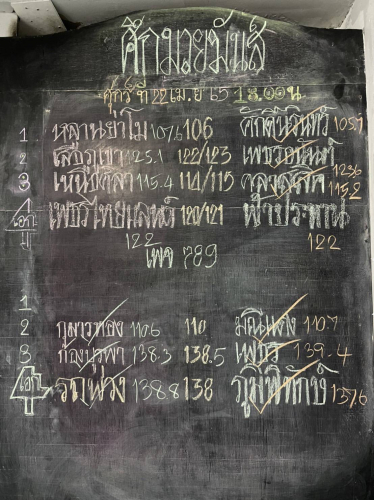 ศึกมวยมันส์
ศุกร์ที่ 22 เม.ย 65 18.00น
1 หลานย่าโม 107.6 106 ศักดิ์นรินทร์ 105.9
2 เสือภูเขา 125.1 122/123 เพชร 123.6
3 เหนือศิลา 115.4 114/115 115.2
4 เอก เพชรไทยแลนด์ 120/121 ฟ้าประทาน
122 122
เพจ 789
1
2 กุลาวทอง 110.6 110 มณีแดง 110.7
3 ก้องบูรพา 138.3 138.5 เพชร 139.4
4 เอก รถพ่วง 138.8 138 ภูมิพิทักษ์ 137.6